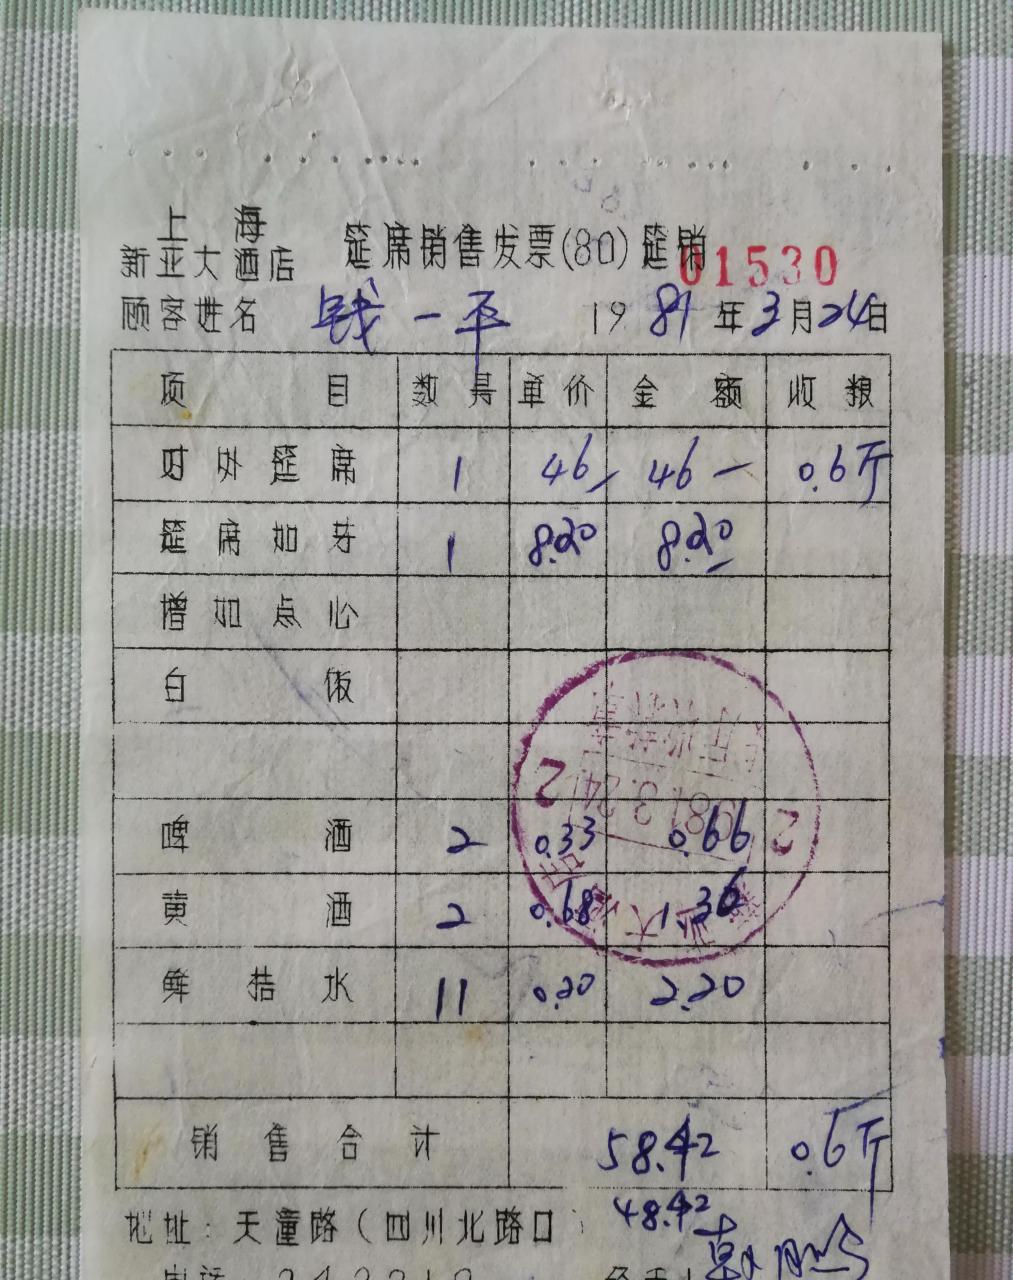 上海
新亚大酒店 筵席销售发票(80)筵销 01530
顾客姓名 钱一平 1981年3月24日
项目 数量 单价 金额 收粮
对外筵席 1 46/ 46— 0.6斤
筵席加芽 1 8.20 8.20
增加点心
白饭
啤酒 2 0.33 0.66
黄酒 2 0.68 1.36
鲜桔水 11 0.20 2.20
销售合计 58.42 0.6斤
48.42
地址:天潼路(四川北路口)